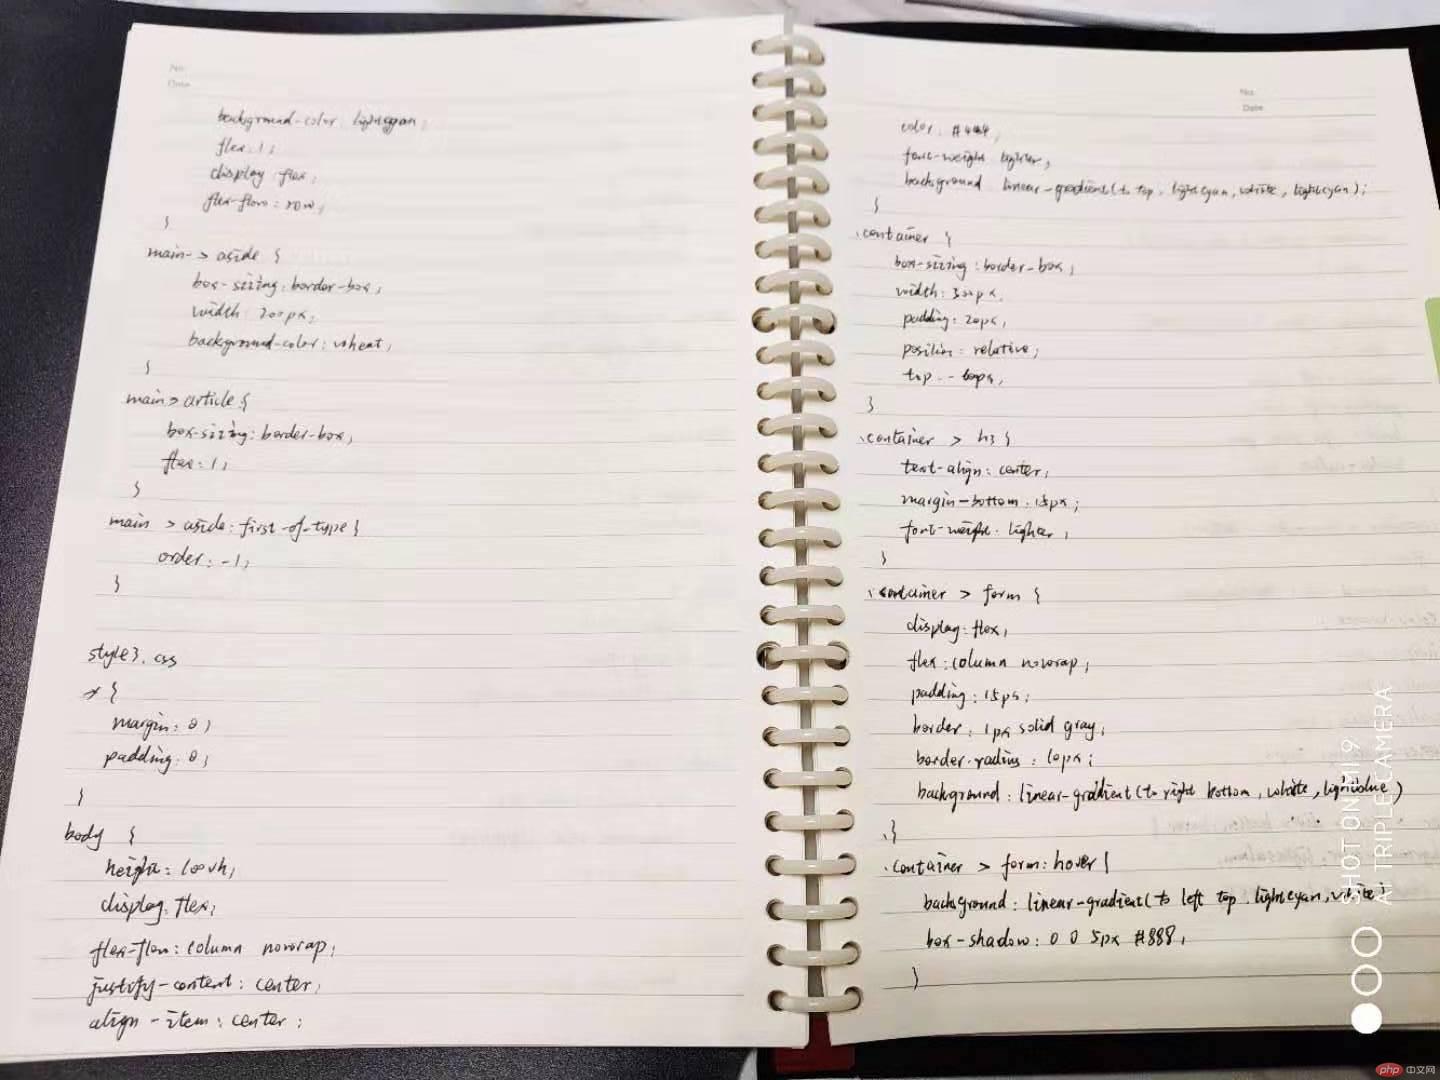 No.
Date
background-color: lightcyan;
flex: 1;
display: flex;
flex-flow: row;
}
main > aside {
box-sizing: border-box;
width: 200px;
background-color: wheat;
}
main > article {
box-sizing: border-box;
flex: 1;
}
main > aside:first-of-type {
order: -1;
}
style3.css
* {
margin: 0;
padding: 0;
}
body {
height: 100vh;
display: flex;
flex-flow: column nowrap;
justify-content: center;
align-item: center;
No.
Date
color: #444;
font-weight: lighter;
background: linear-gradient(to top, lightcyan, white, lightcyan);
}
.container {
box-sizing: border-box;
width: 300px;
padding: 20px;
position: relative;
top: -60px;
}
.container > h3 {
text-align: center;
margin-bottom: 15px;
font-weight: lighter;
}
.container > form {
display: flex;
flex: column nowrap;
padding: 15px;
border: 1px solid gray;
border-radius: 10px;
background: linear-gradient(to right bottom, white, lightblue)
}
.container > form:hover {
background: linear-gradient(to left top, lightcyan, white);
box-shadow: 0 0 5px #888;
}
SHOT ON MI 9
AI TRIPLE CAMERA
php 中文网